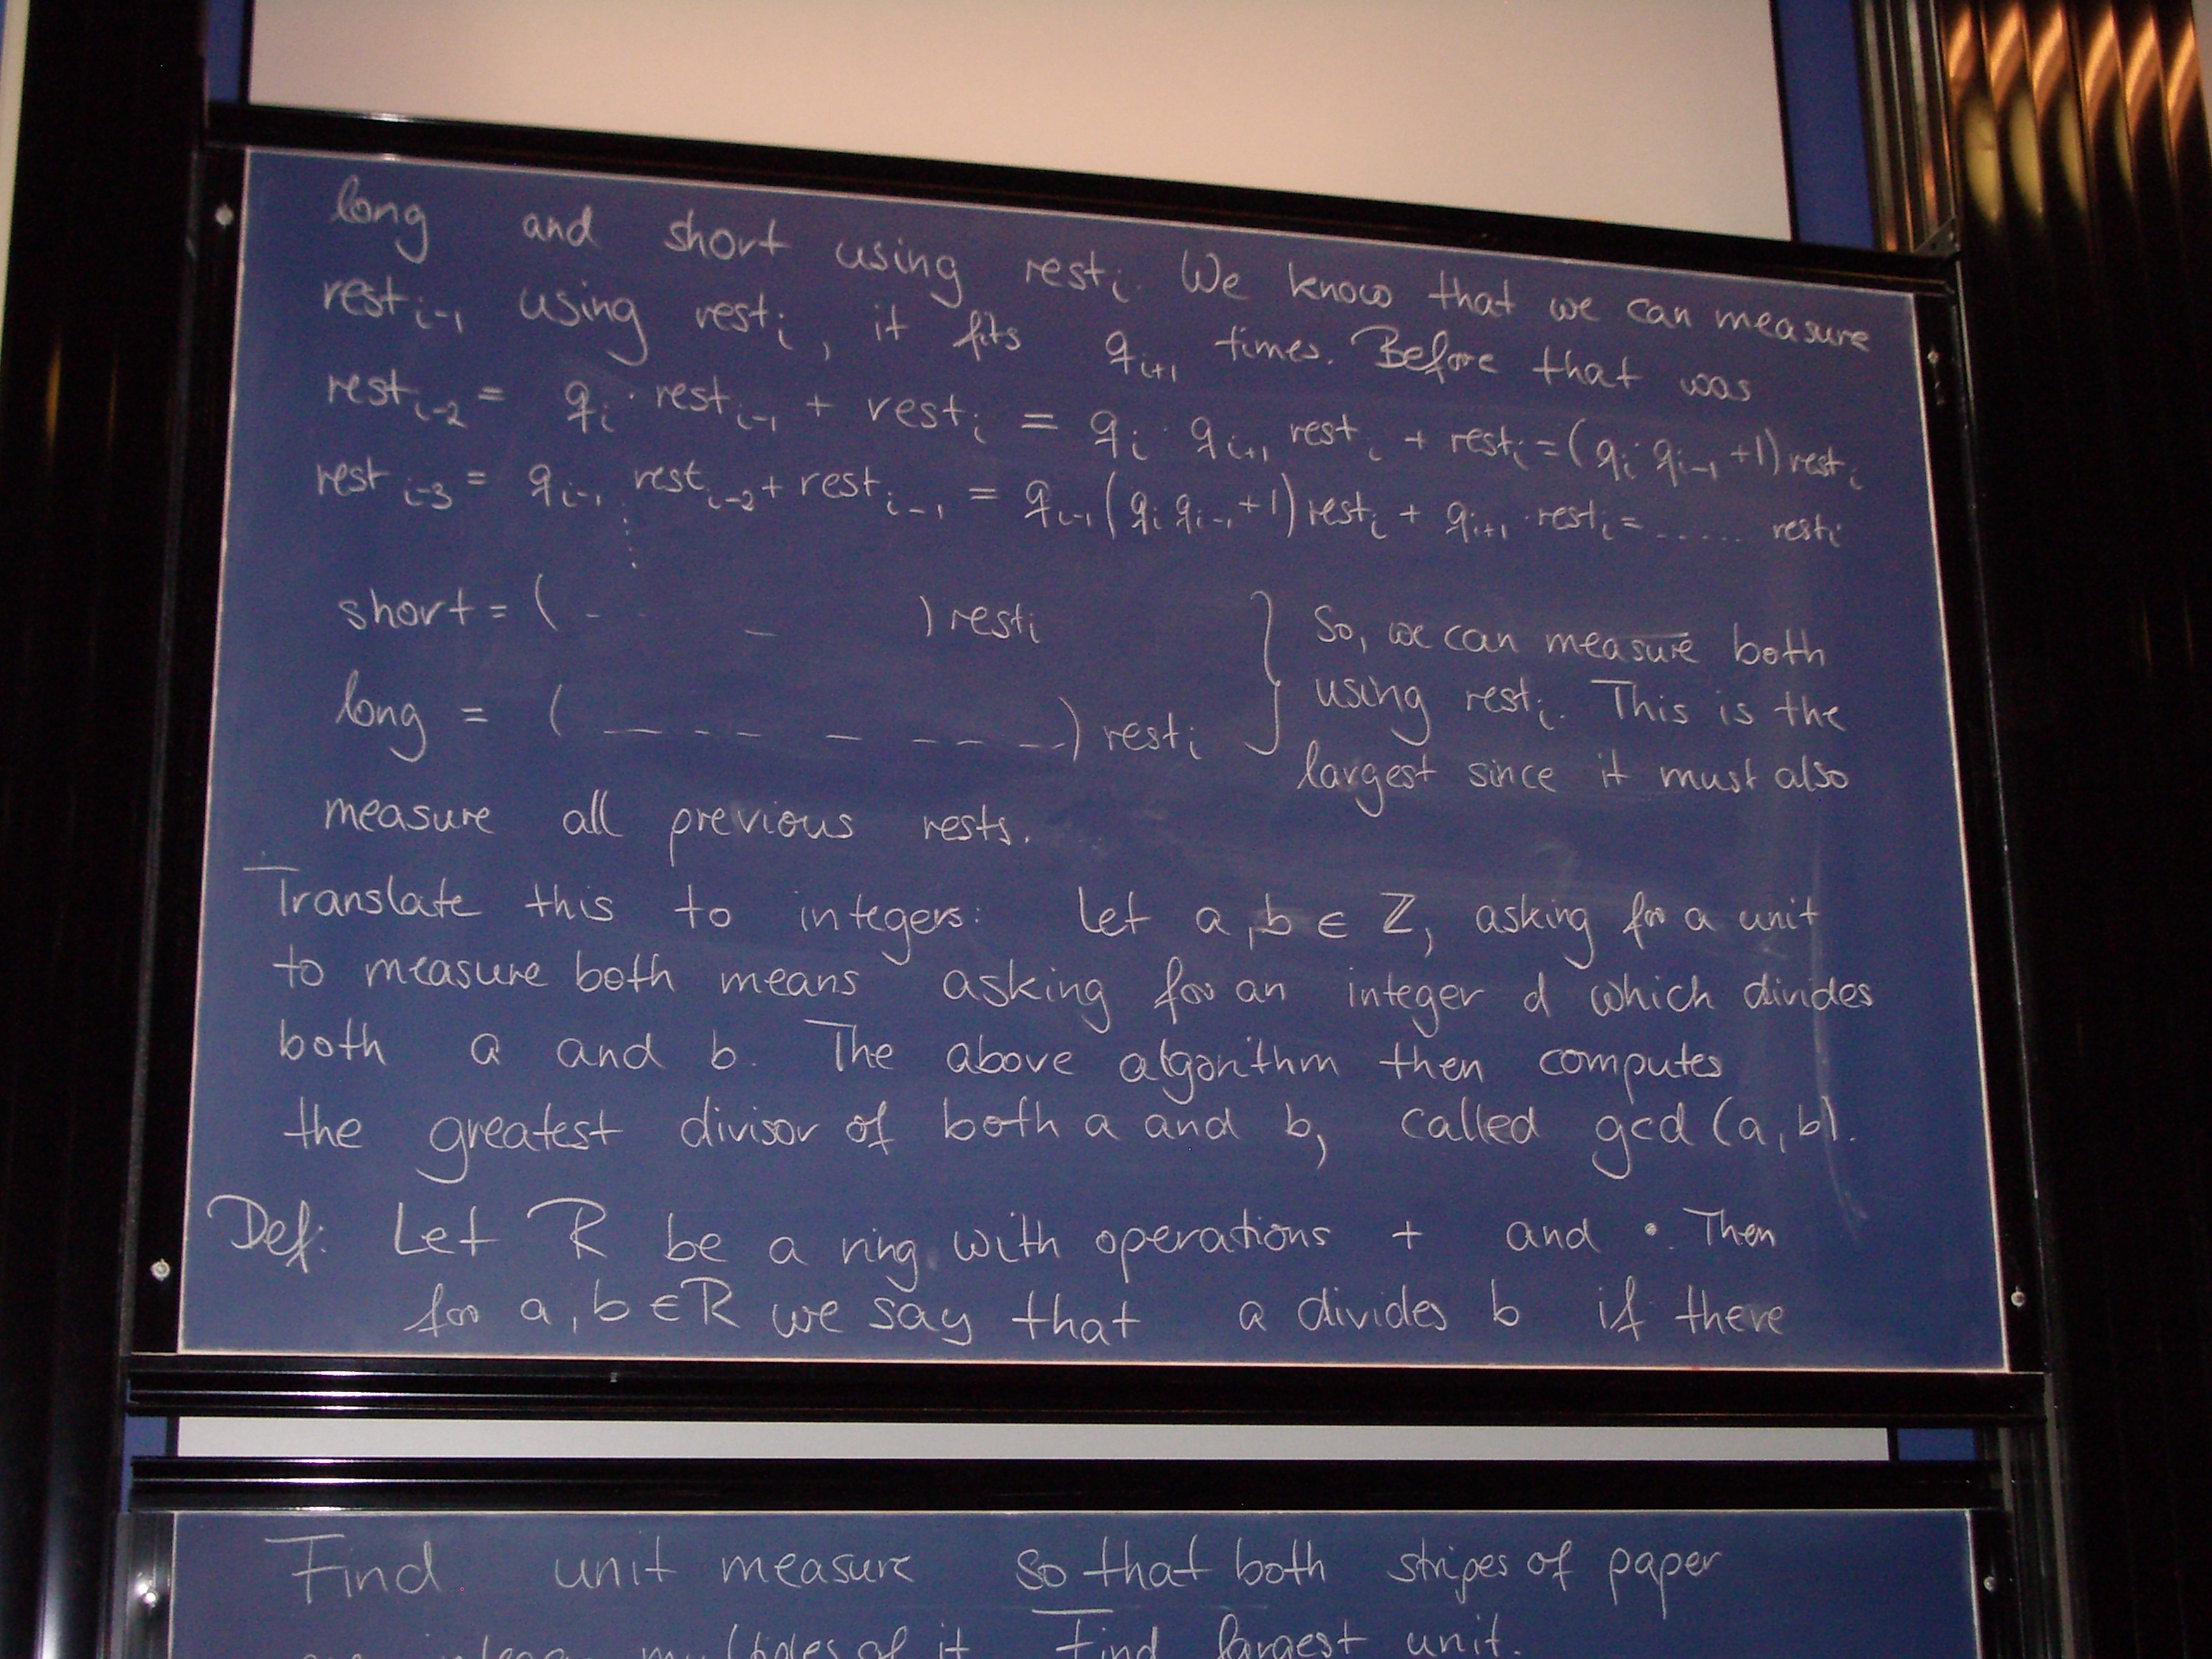 long and short using rest_i. We know that we can measure
rest_{i-1} using rest_i, it fits q_{i+1} times. Before that was
rest_{i-2} = q_i · rest_{i-1} + rest_i = q_i · q_{i+1} rest_i + rest_i = (q_i q_{i-1} +1) rest_i
rest_{i-3} = q_{i-1} rest_{i-2} + rest_{i-1} = q_{i-1} (q_i q_{i-1} +1) rest_i + q_{i+1} · rest_i = ...... rest_i
short = ( - _ ) rest_i
So, we can measure both
long = ( _ _ _ _ _ _ _ ) rest_i
using rest_i. This is the
largest since it must also
measure all previous rests.
Translate this to integers: Let a, b ∈ Z, asking for a unit
to measure both means asking for an integer d which divides
both a and b. The above algorithm then computes
the greatest divisor of both a and b, called gcd (a, b).
Def: Let R be a ring with operations + and •. Then
for a, b ∈ R we say that a divides b if there
Find unit measure so that both stripes of paper
multiples of it. Find largest unit.